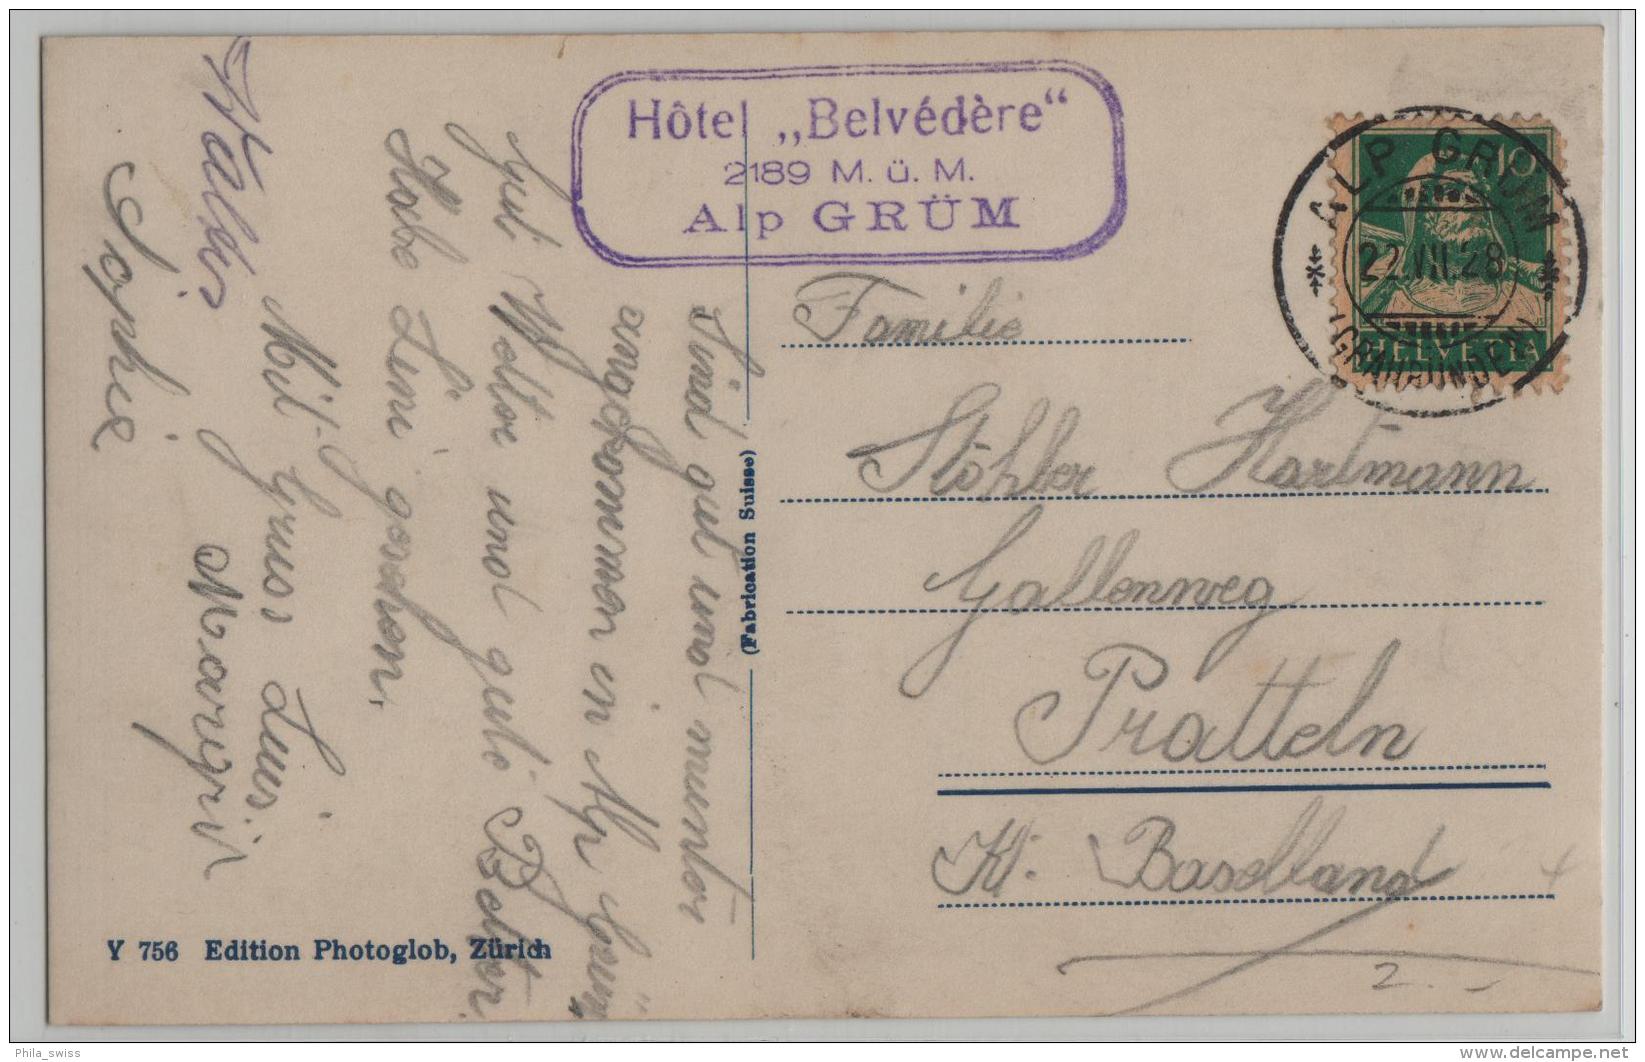 Hôtel „Belvédère“
2189 M. ü. M.
Alp GRÜM
ALP GRÜM
22.VII.28
(GRAUBÜNDEN)
10
HELVETIA
Familie
Stöhler Hartmann
Gallenweg
Pratteln
Kt. Baselland
2.
Sind gut und munter
angekommen in Alp Grüm
Gut Wetter und gute Better
Habe Leni gesehen.
Mit Gruss Luis
Margrit
Walter
Sophie
(Fabrication Suisse)
Y 756 Edition Photoglob, Zürich
Phila_swiss
delcampe.net